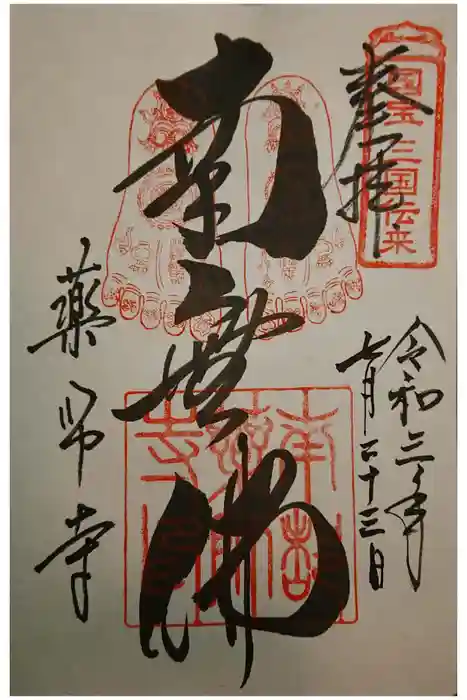 奉拝
国宝 三国伝来
令和三年
七月二十三日
南無佛
藥師寺